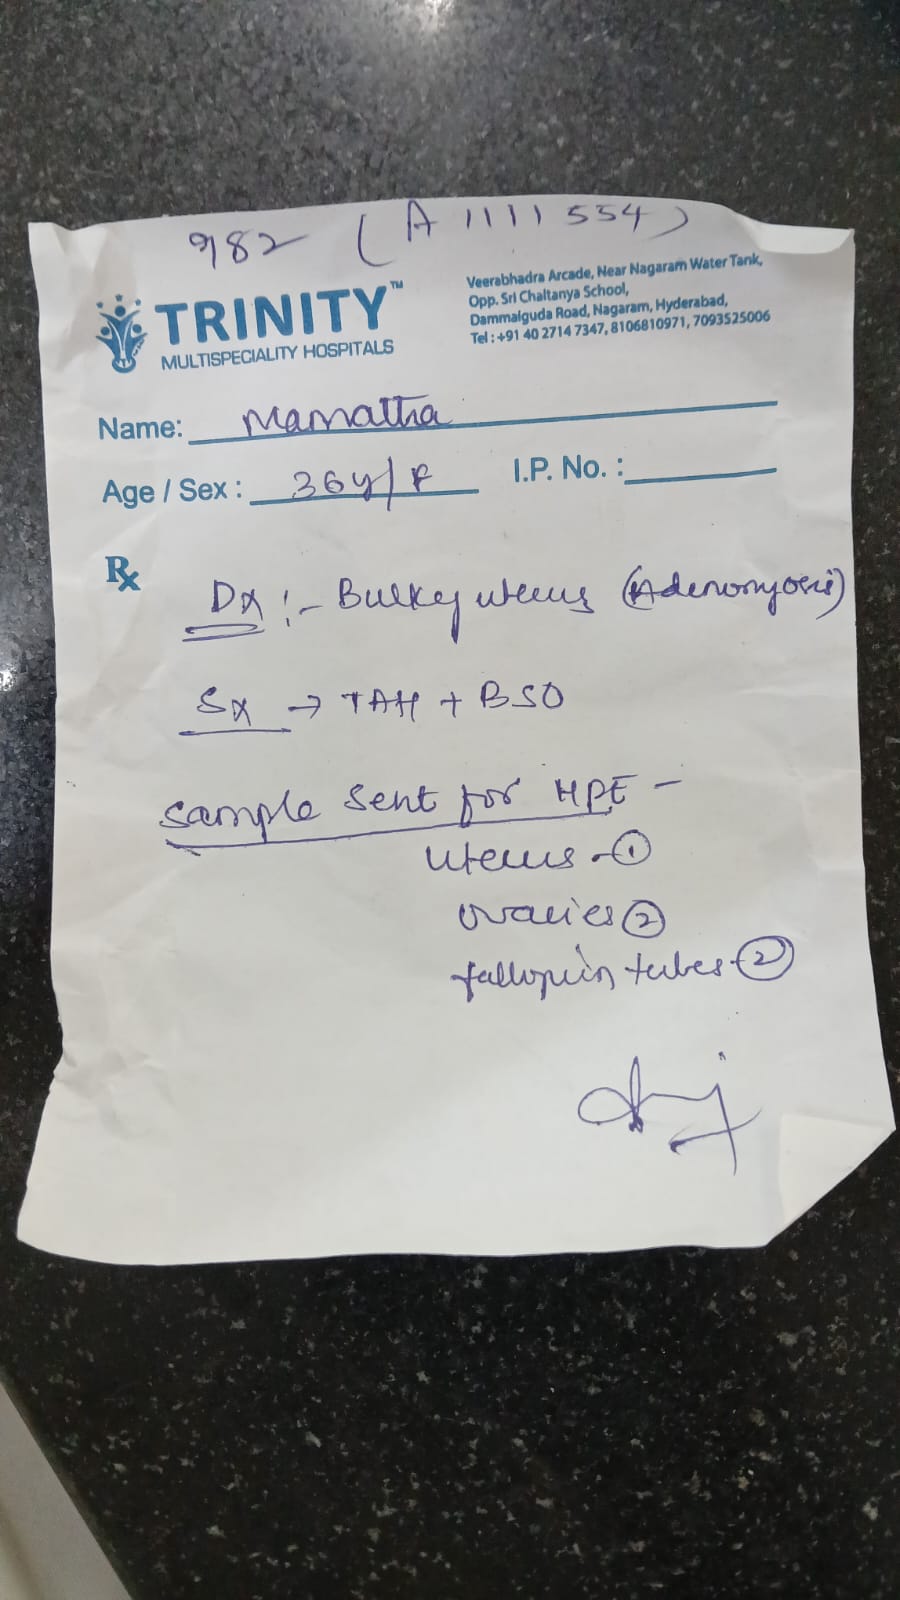 982 (A 1111 554)
TRINITY™
MULTISPECIALITY HOSPITALS
Veerabhadra Arcade, Near Nagaram Water Tank,
Opp. Sri Chaitanya School,
Dammaiguda Road, Nagaram, Hyderabad,
Tel : +91 40 2714 7347, 8106810971, 7093525006
Name: Mamatha
Age / Sex : 36y/F I.P. No. :
Rx
Dx :- Bulky uterus (Adenomyosis)
Sx → TAH + BSO
Sample sent for HPE -
uterus - 1
ovaries 2
fallopian tubes - 2